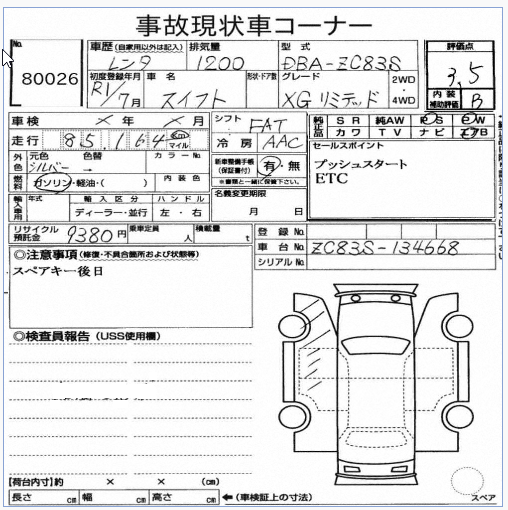 事故現状車コーナー
No.
80026
車歴(自家用以外は記入)
レンタ
排気量
1200
型式
DBA-ZC83S
評価点
3.5
初度登録年月
R1/7月
車名
スイフト
形状・ドア数
グレード
XGリミテッド
2WD
・
4WD
内装
補助評価
B
車検 × 年 × 月
シフト
FAT
純正品
SR 純AW PS PW
カワ TV ナビ
走行 85,164 km マイル
冷房
AAC
セールスポイント
プッシュスタート
ETC
外色
元色
シルバー
色替
→
カラーNo.
新車整備手帳
(保証書付)
有・無
※書類と一緒に保管下さい。
燃料
ガソリン・軽油・( )
内装色
名義変更期限
月 日
輸入車用
年式
輸入区分
ディーラー・並行
ハンドル
左・右
リサイクル
預託金
9380円
乗車定員
人
積載量
t
登録No.
車台No.
ZC83S-134668
シリアルNo.
◎注意事項(修復・不具合箇所および状態等)
スペアキー後日
◎検査員報告(USS使用欄)
【荷台内寸】約 × × (cm)
長さ cm 幅 cm 高さ cm ←(車検証上の寸法)
スペア